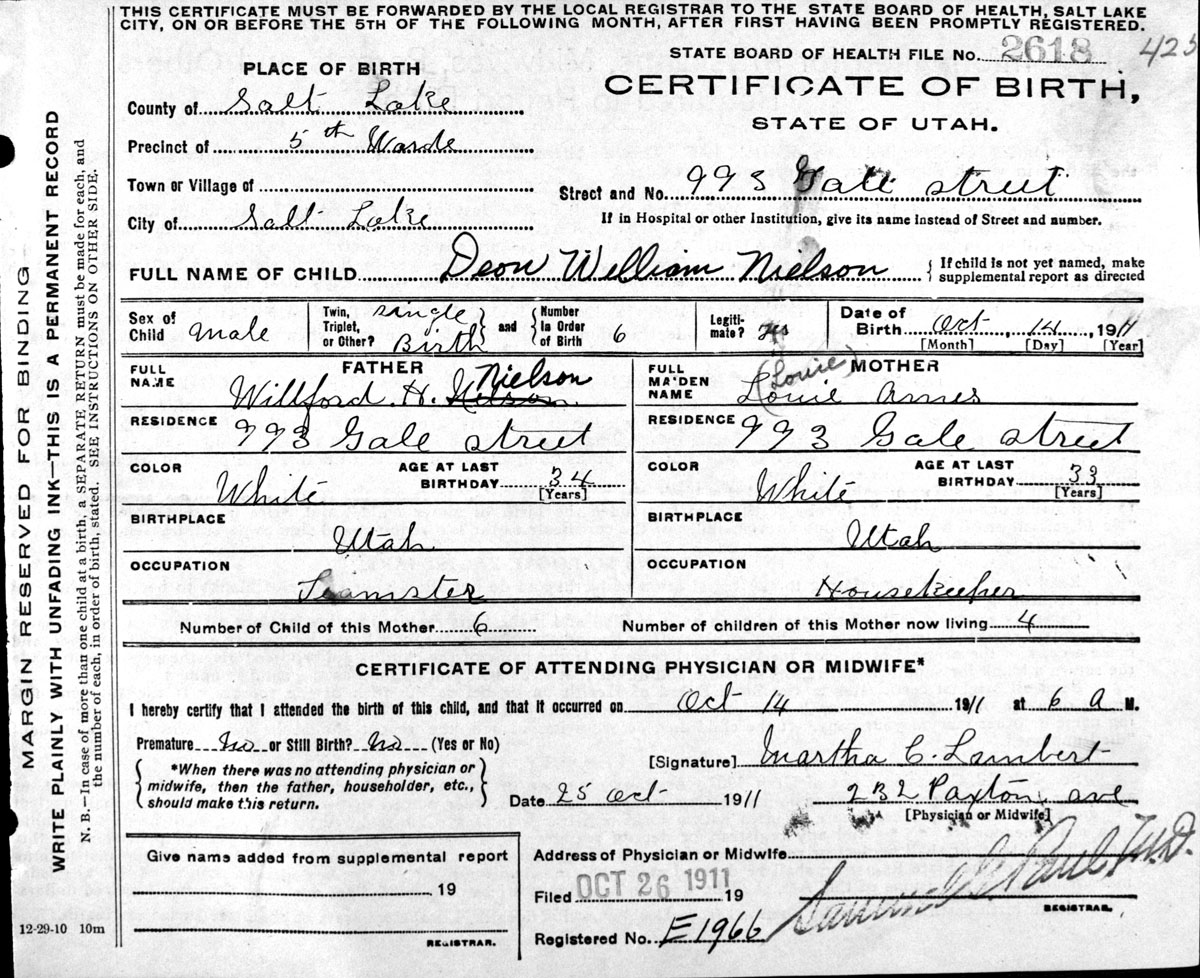 THIS CERTIFICATE MUST BE FORWARDED BY THE LOCAL REGISTRAR TO THE STATE BOARD OF HEALTH, SALT LAKE
CITY, ON OR BEFORE THE 5TH OF THE FOLLOWING MONTH, AFTER FIRST HAVING BEEN PROMPTLY REGISTERED.
STATE BOARD OF HEALTH FILE No. 2618 425
PLACE OF BIRTH
CERTIFICATE OF BIRTH,
STATE OF UTAH.
County of Salt Lake
Precinct of 5th Warde
Town or Village of
Street and No. 993 Gale street
City of Salt Lake
If in Hospital or other Institution, give its name instead of Street and number.
FULL NAME OF CHILD Deon William Nielson
{ If child is not yet named, make
supplemental report as directed
Sex of Child male
Twin, Triplet, or Other? single Birth
and
Number In Order of Birth 6
Legiti-mate? yes
Date of Birth Oct 14 1911
[Month] [Day] [Year]
FATHER
FULL NAME Willford H. Nielson
MOTHER
FULL MAIDEN NAME Louie Ames (Louie)
RESIDENCE 993 Gale street
RESIDENCE 993 Gale street
COLOR White AGE AT LAST BIRTHDAY 34 [Years]
COLOR White AGE AT LAST BIRTHDAY 33 [Years]
BIRTHPLACE Utah
BIRTHPLACE Utah
OCCUPATION Teamster
OCCUPATION Housekeeper
Number of Child of this Mother 6 Number of children of this Mother now living 4
CERTIFICATE OF ATTENDING PHYSICIAN OR MIDWIFE*
I hereby certify that I attended the birth of this child, and that it occurred on Oct 14 1911 at 6 a M.
Premature No or Still Birth? No (Yes or No)
[Signature] Martha C. Lambert
*When there was no attending physician or
midwife, then the father, householder, etc.,
should make this return.
Date 25 Oct 1911 232 Paxton ave
[Physician or Midwife]
Give name added from supplemental report
19
REGISTRAR.
Address of Physician or Midwife
Filed OCT 26 1911 19
Paul M.D.
REGISTRAR.
Registered No. E1966
12-29-10 10m
MARGIN RESERVED FOR BINDING
WRITE PLAINLY WITH UNFADING INK—THIS IS A PERMANENT RECORD
N. B.—In case of more than one child at a birth, a SEPARATE RETURN must be made for each, and
the number of each, in order of birth, stated. SEE INSTRUCTIONS ON OTHER SIDE.